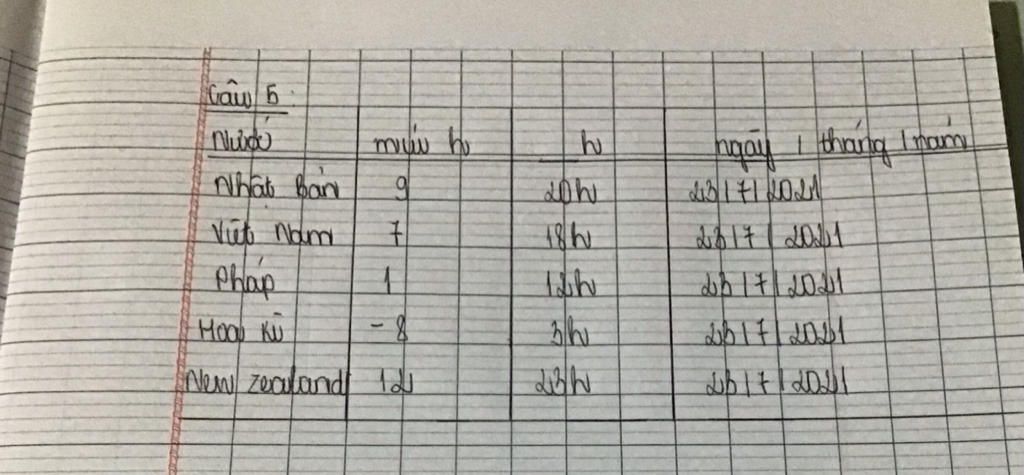 Câu 5.
Nước múi h h ngày / tháng / năm
Nhật Bản 9 20h 23/7/2021
Việt Nam 7 18h 23/7/2021
Pháp 1 12h 23/7/2021
Hoa Kì -8 3h 23/7/2021
New Zealand 12 23h 23/7/2021